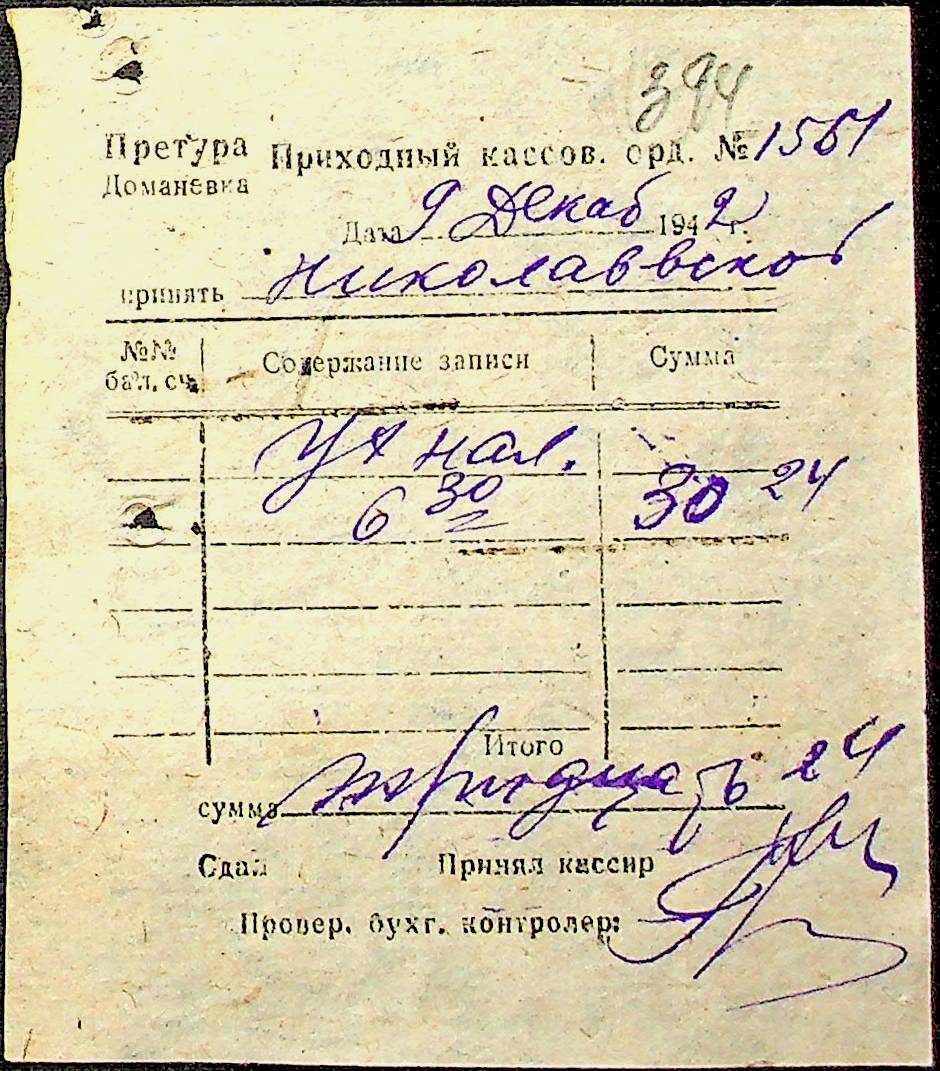 394
Претура Приходный кассов. орд. № 1561
Доманевка
Дата 9 Декаб 1942 г.
принять Николаввской
№№ бал. сч. Содержание записи Сумма
Ух нал.
6 30 30 24
Итого
сумма тридцать 24
Сдал Принял кассир
Провер. бухг. контролер: